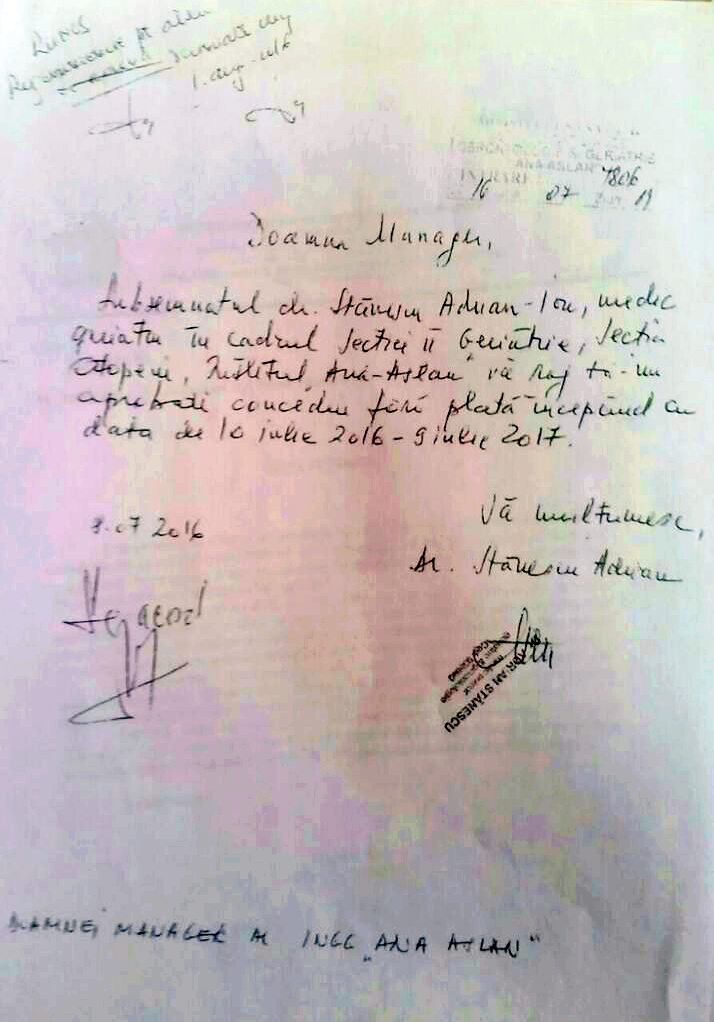 RUNOS
1. aug.
GERONTOLOGIE & GERIATRIE
"ANA ASLAN"
INTRARE 7806
16 07
Doamna Manager,
Subsemnatul dr. Stănescu Adrian-Ion, medic
geriatru în cadrul Secției II Geriatrie, Secția
Otopeni, Institutul „Ana-Aslan" vă rog să-mi
aprobați concediu fără plată începând cu
data de 10 iulie 2016 - 9 iulie 2017.
Vă mulțumesc,
8.07 2016
Dr. Stănescu Adrian
De acord
ADRIAN STĂNESCU
DOAMNEI MANAGER AL INGG „ANA ASLAN"